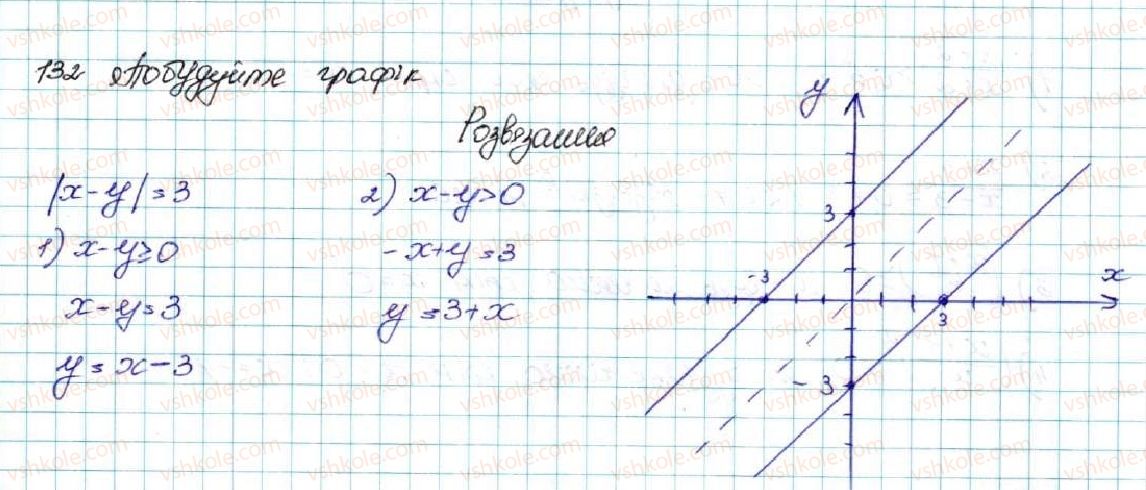 132 Побудуйте графік
Розв'язання
|x-y|=3
1) x-y≥0
x-y=3
y=x-3
2) x-y>0
-x+y=3
y=3+x
y
3
-3
x
3
-3
vshkole.com